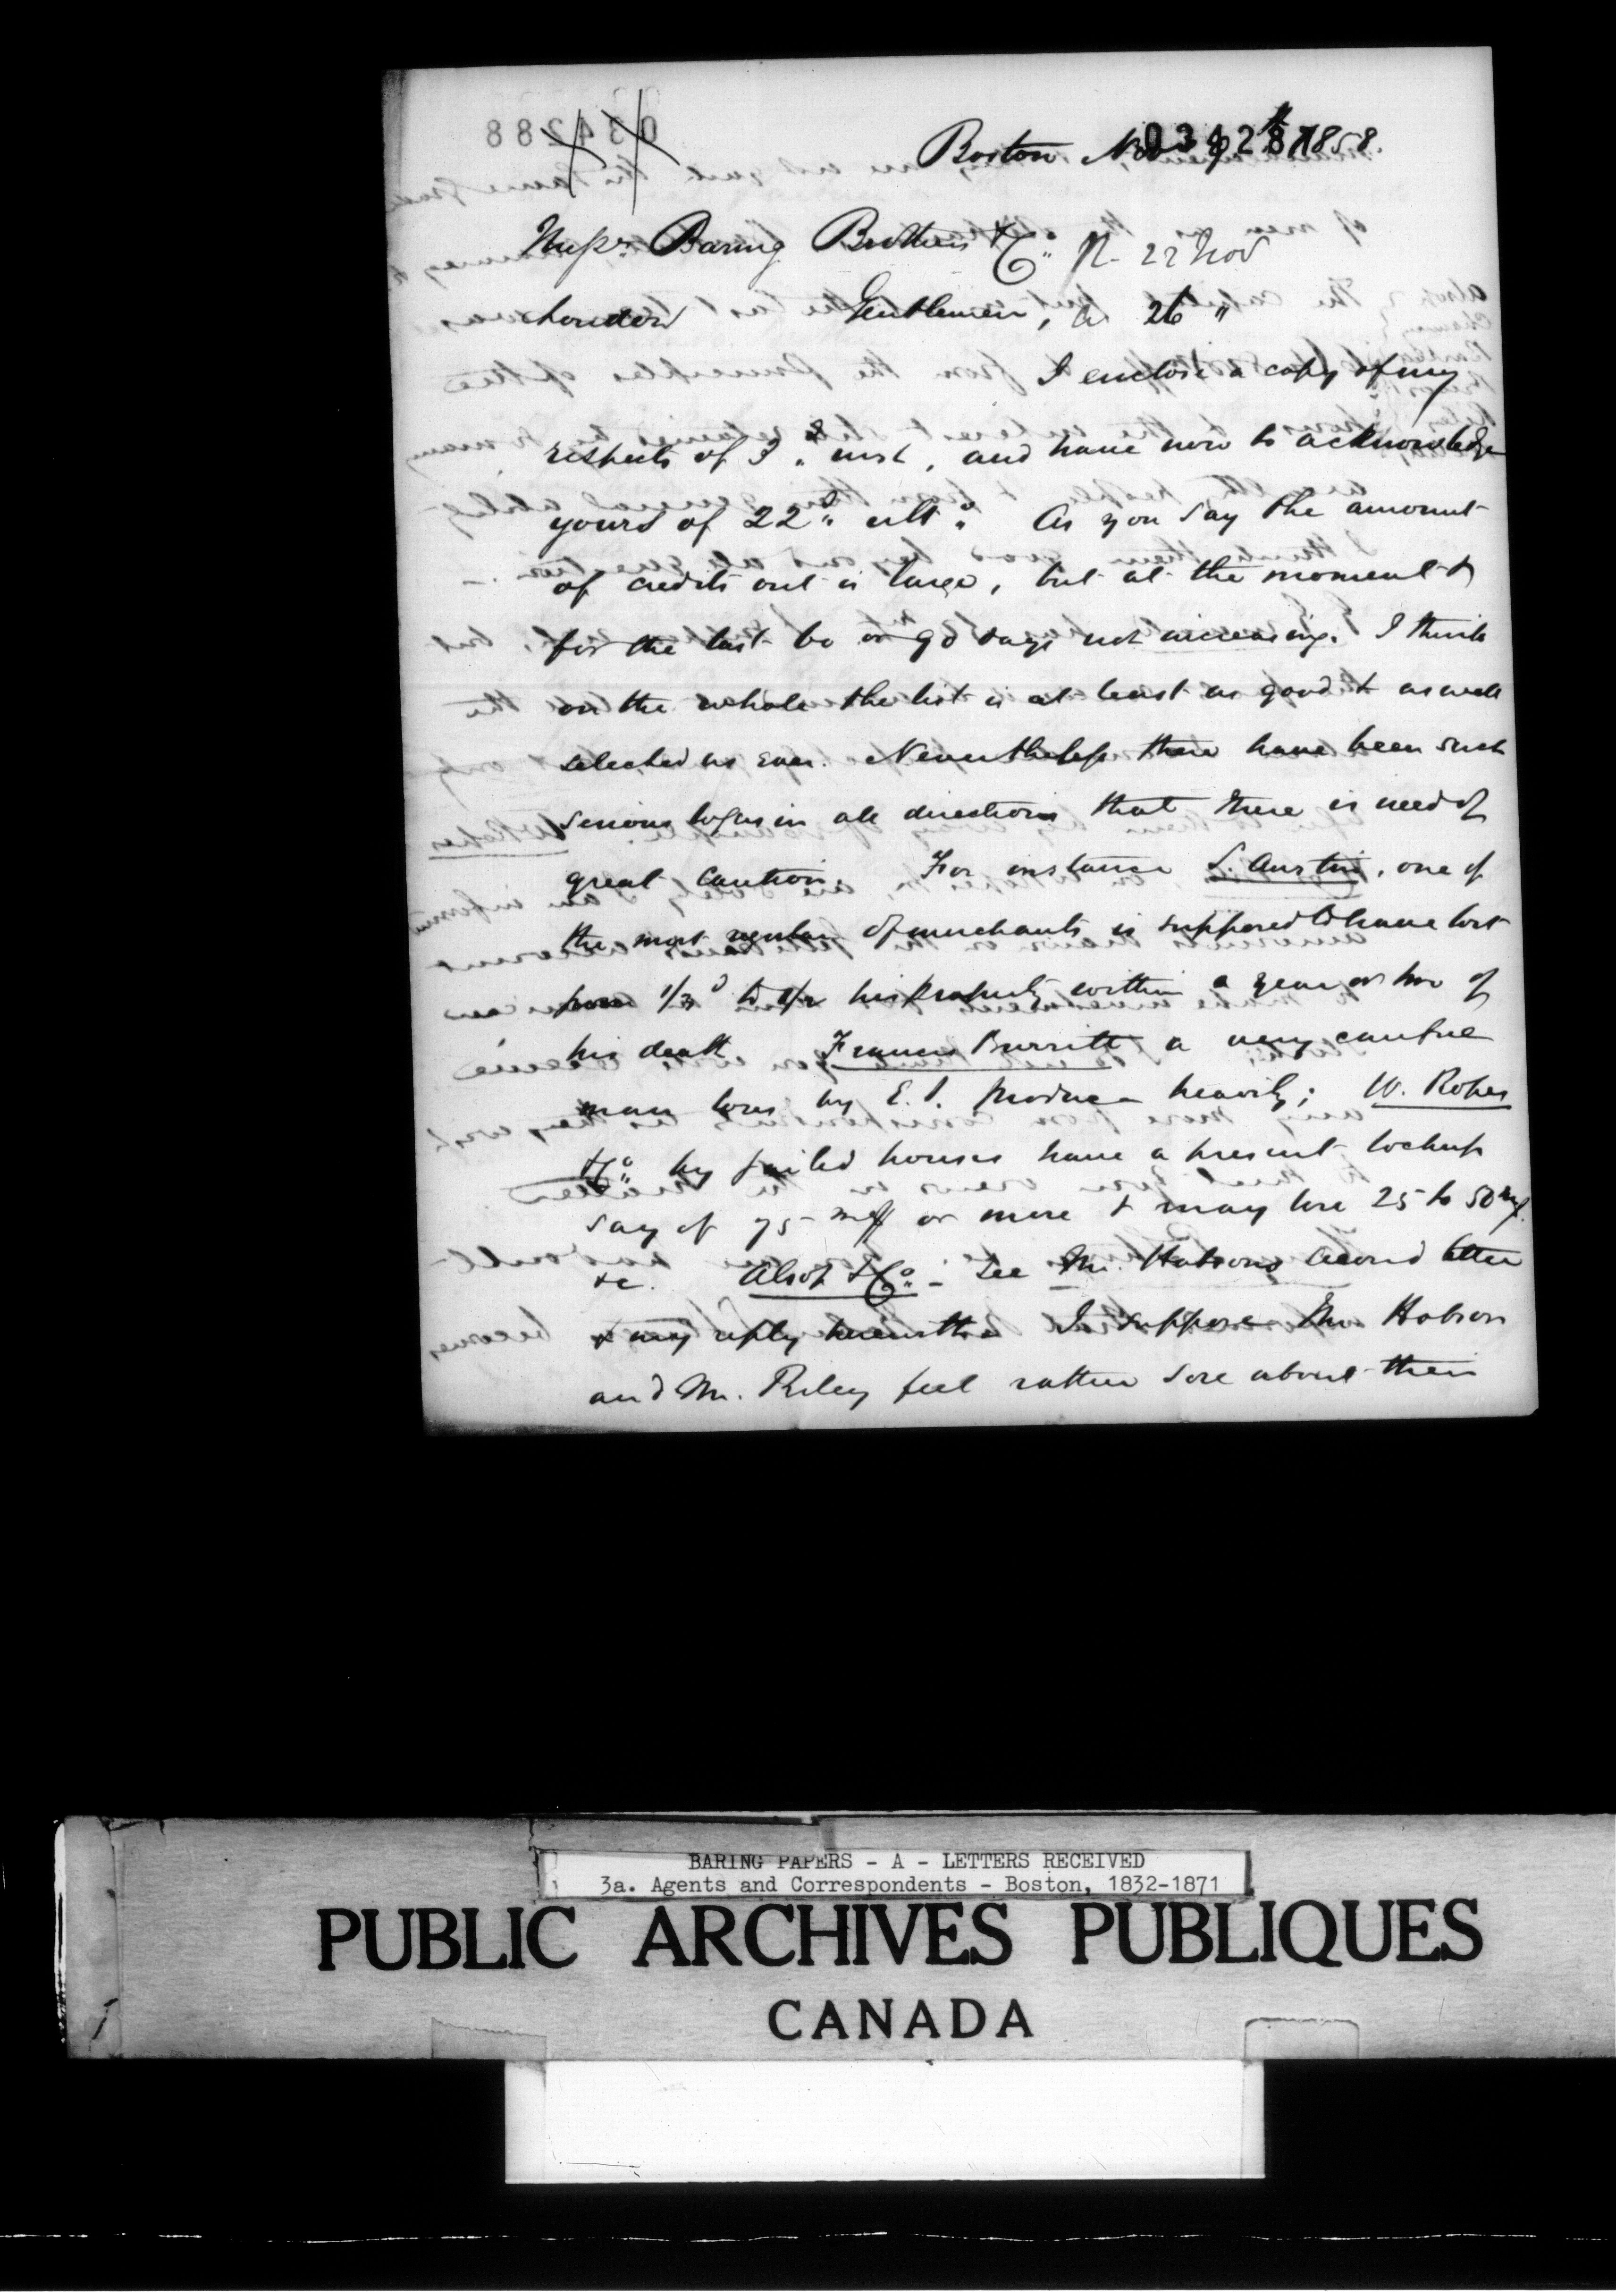 034288
Boston Nov 9th 1858.
034287
Messrs Baring Brothers & Co. R- 22 Nov
London Gentlemen, A 26 "
I enclose a copy of my
respects of 3d inst, and have now to acknowledge
yours of 22d ulto. As you say the amount
of credits out is large, but at the moment &
for the last 60 or 90 days not increasing. I think
on the whole the list is at least as good & as well
selected as ever. Nevertheless there have been such
serious losses in all directions that there is need of
great caution. For instance S. Austin, one of
the most regular of merchants is supposed to have lost
from 1/3d to 1/2 his property within a year or two of
his death. Francis Burritt a very careful
man loses by E. I. produce heavily; W. Ropes
& Co. by failed houses have a present lockup
say of 75 m$ or more & may lose 25 to 50 m$.
&c. Alsop & Co. - See Mr. Hobsons second letter
& my reply herewith. I suppose Mr Hobson
and Mr. Riley feel rather sore about their
BARING PAPERS - A - LETTERS RECEIVED
3a. Agents and Correspondents - Boston, 1832-1871
PUBLIC ARCHIVES PUBLIQUES
CANADA